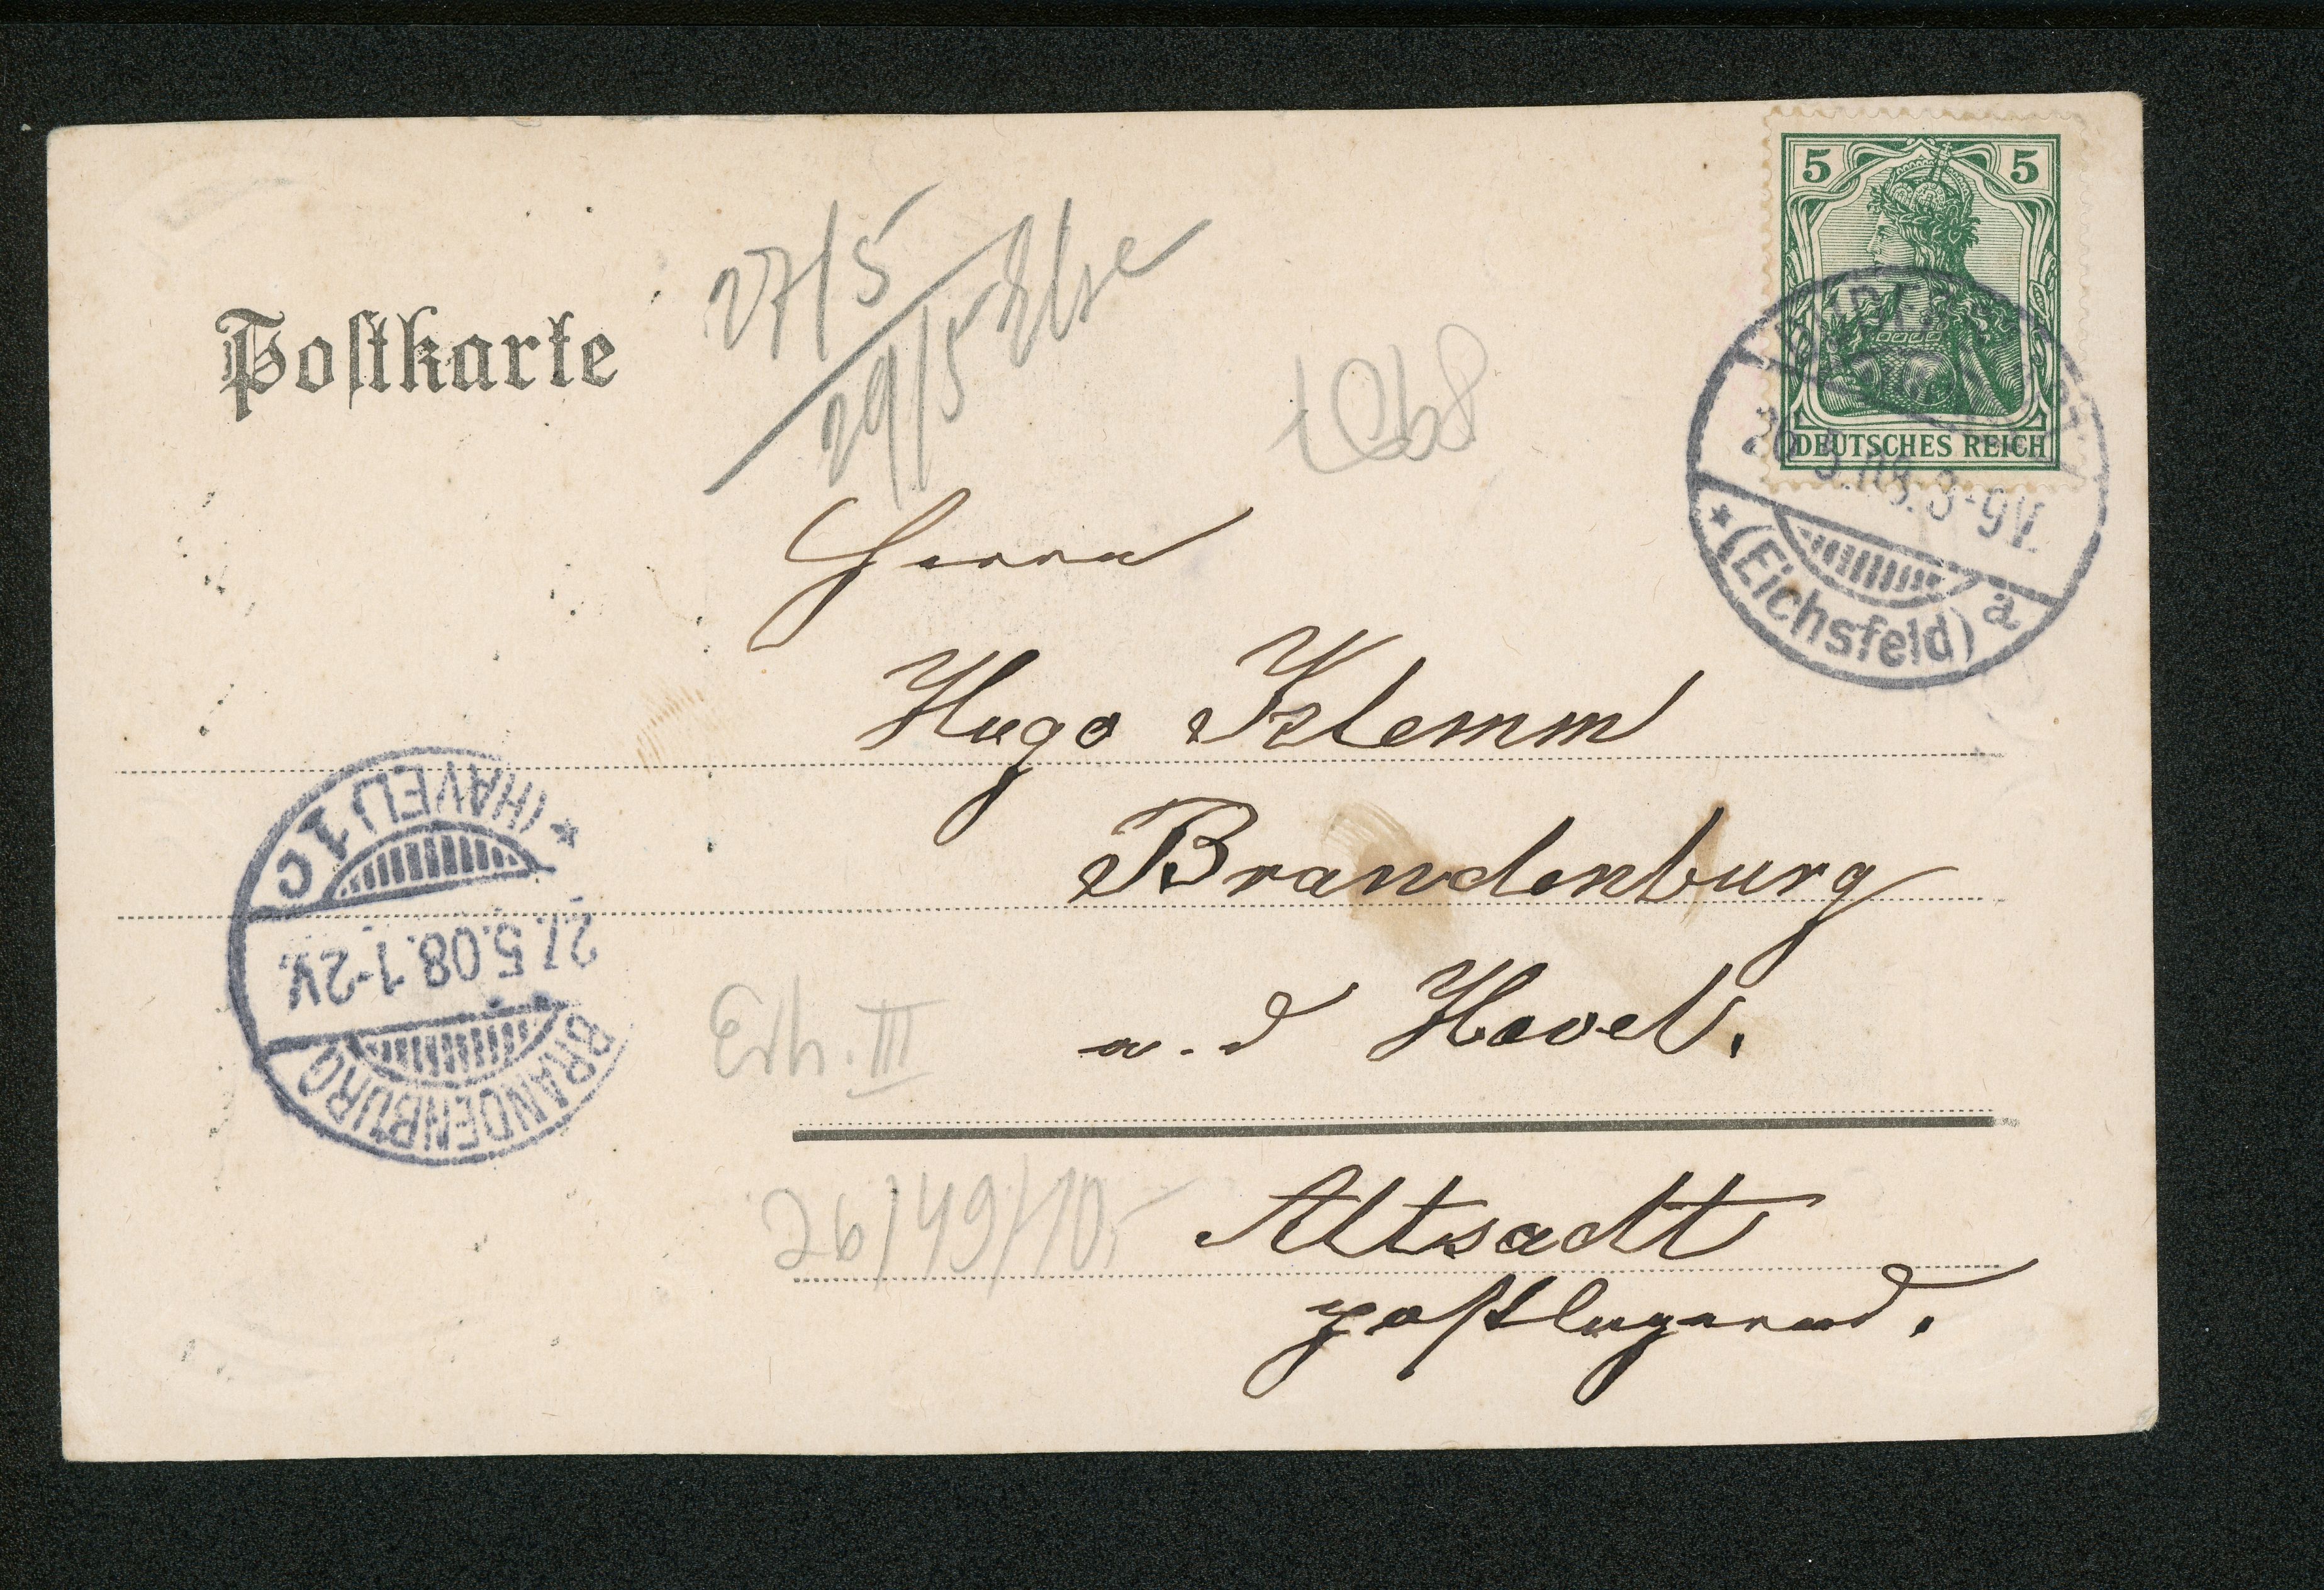 5 5
DEUTSCHES REICH
26.5.08. 8-9V.
(Eichsfeld) a
Postkarte
27/5
29/5 Else
Herrn
Hugo Klemm
Brandenburg
a. d Havel.
Altsadt
postlagernd.
BRANDENBURG
27.5.08.1-2V.
* (HAVEL) 1 c
Erh. III
26/49/10,-